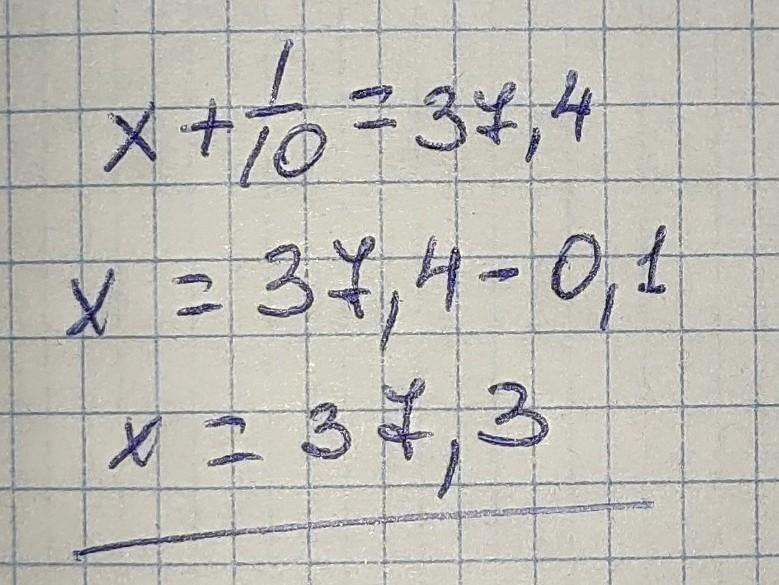 x + 1/10 = 37,4
x = 37,4 - 0,1
x = 37,3